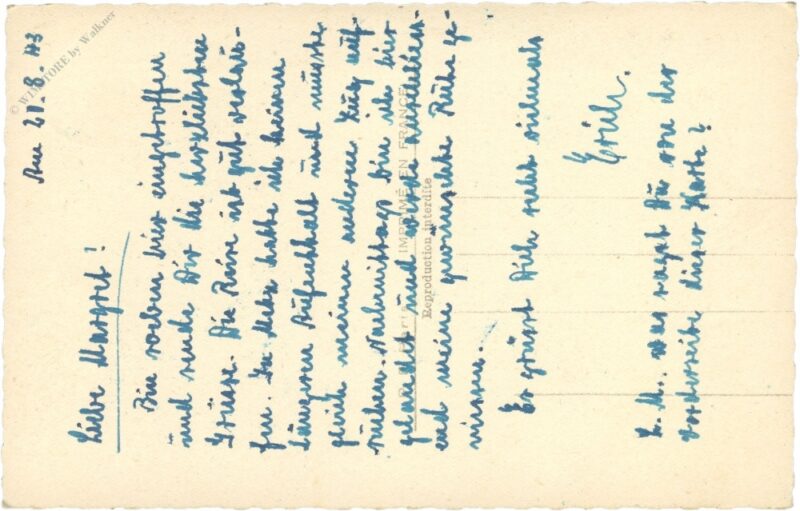 Am 21.8.43
Liebe Margret!
Bin soeben hier eingetroffen
und sende Dir die herzlichsten
Grüsse. Die Reise ist gut verlau-
fen. In Metz hatte ich keinen
längeren Aufenthalt und musste
gleich meinen anderen Zug auf-
suchen. Nachmittags bin ich hier
gelandet und werde anschliess-
end meine gewünschte Ruhe ge-
niessen.
Es grüsst Dich recht vielmals
Erich.
L.M., was sagst Du von der
Vorderseite dieser Karte?
Paris
IMPRIMÉ EN FRANCE
Reproduction interdite
© WINSTORE by Walkner